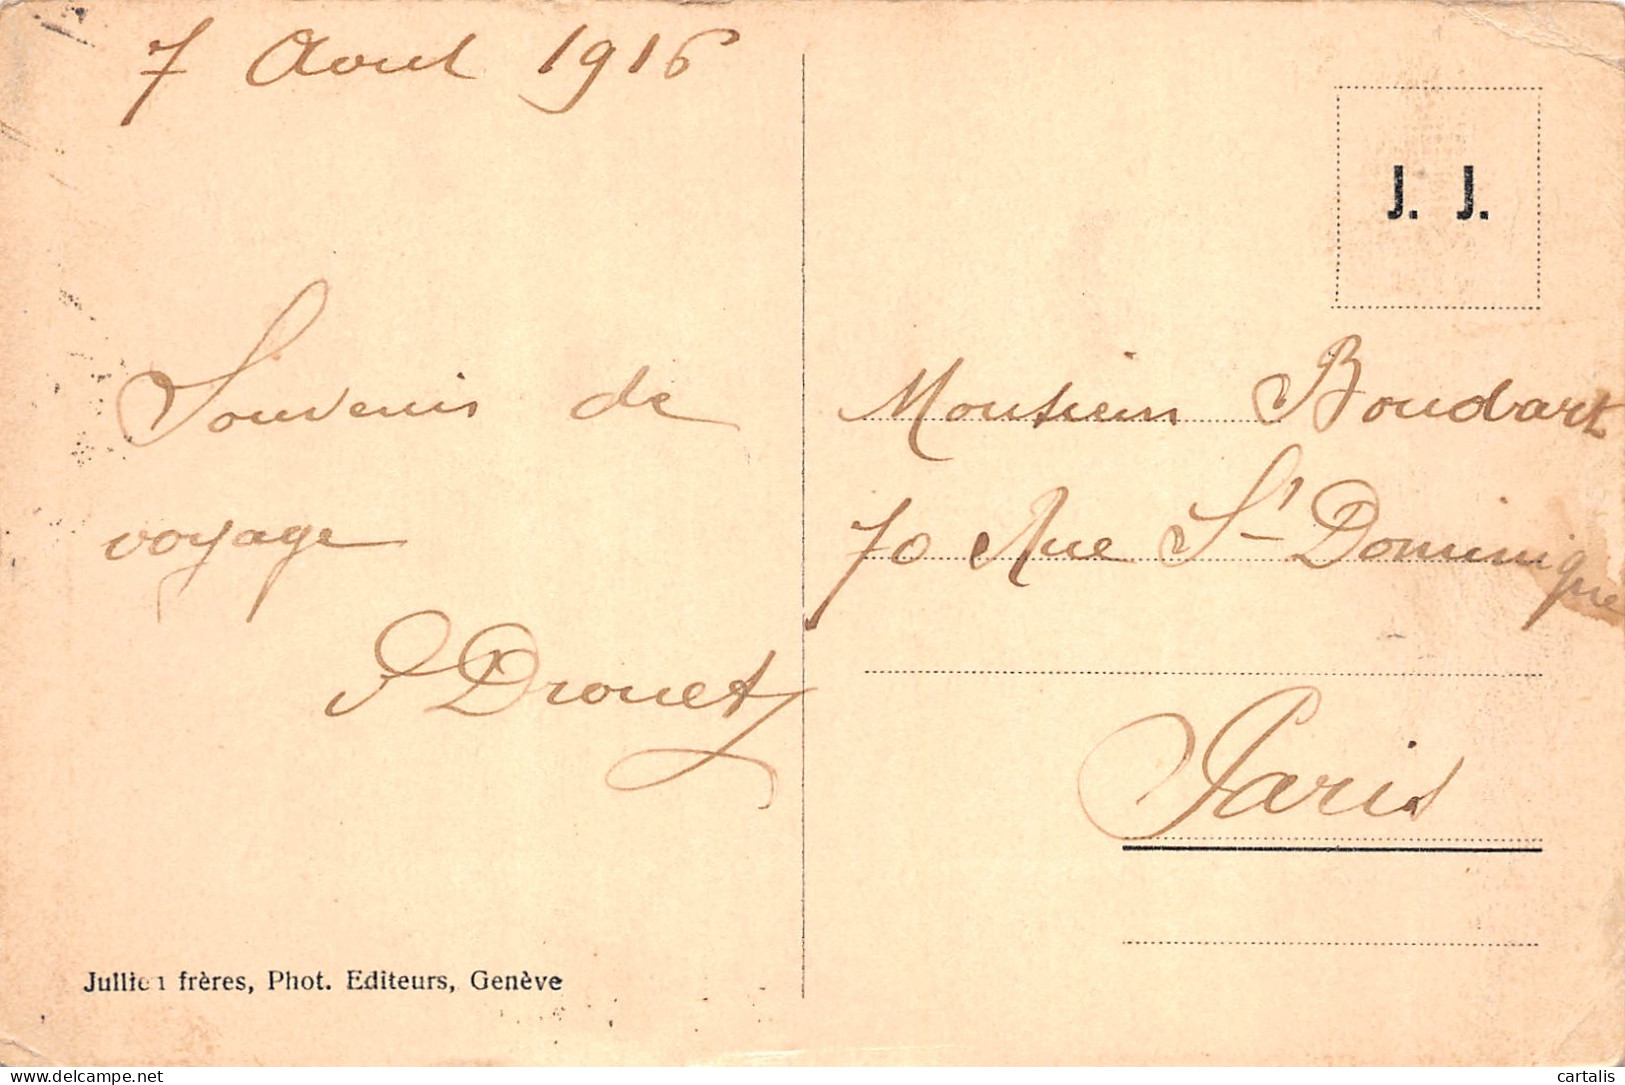 7 Avril 1916
J. J.
Souvenir de
voyage
P Drouet
Monsieur Boudart
70 Rue St Dominique
Paris
Jullien frères, Phot. Editeurs, Genève
delcampe.net
cartalis